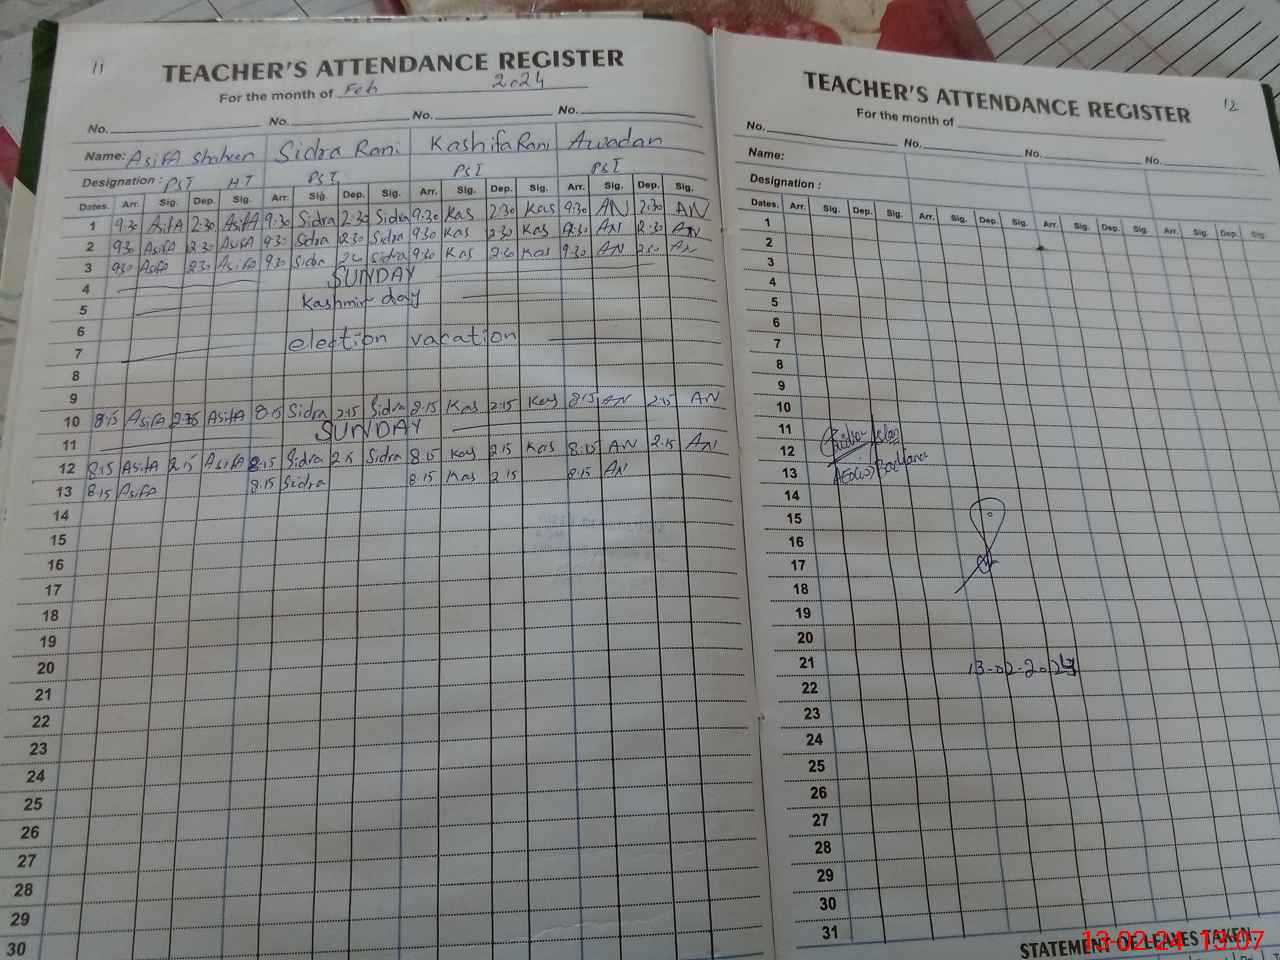 11
TEACHER'S ATTENDANCE REGISTER
For the month of Feb 2024
No. No. No. No.
Name: Asifa Shaheen Sidra Rani Kashifa Rani Awadan
Designation: PST HT PST PST PST
Dates. Arr. Sig. Dep. Sig. Arr. Sig. Dep. Sig. Arr. Sig. Dep. Sig. Arr. Sig. Dep. Sig.
1 9:30 Asifa 2:30 Asifa 9:30 Sidra 2:30 Sidra 9:30 Kas 2:30 Kas 9:30 AN 2:30 AN
2 9:30 Asifa 2:30 Asifa 9:30 Sidra 2:30 Sidra 9:30 Kas 2:30 Kas 9:30 AN 2:30 AN
3 9:30 Asifa 2:30 Asifa 9:30 Sidra 2:30 Sidra 9:30 Kas 2:30 Kas 9:30 AN 2:30 AN
4 SUNDAY
5 Kashmir day
6
7 election vacation
8
9
10 8:15 Asifa 2:15 Asifa 8:15 Sidra 2:15 Sidra 8:15 Kas 2:15 Kas 8:15 AN 2:15 AN
11 SUNDAY
12 8:15 Asifa 2:15 Asifa 8:15 Sidra 2:15 Sidra 8:15 Kas 2:15 Kas 8:15 AN 2:15 AN
13 8:15 Asifa 8:15 Sidra 8:15 Kas 2:15 8:15 AN
14
15
16
17
18
19
20
21
22
23
24
25
26
27
28
29
30
12
TEACHER'S ATTENDANCE REGISTER
For the month of
No. No. No. No.
Name:
Designation :
Dates. Arr. Sig. Dep. Sig. Arr. Sig. Dep. Sig. Arr. Sig. Dep. Sig. Arr. Sig. Dep. Sig.
1
2
3
4
5
6
7
8
9
10
11
12
13
14
15
16
17
18
19
20
21 13-02-2024
22
23
24
25
26
27
28
29
30
31
STATEMENT OF LEAVES TAKEN
13-02-24 13:07